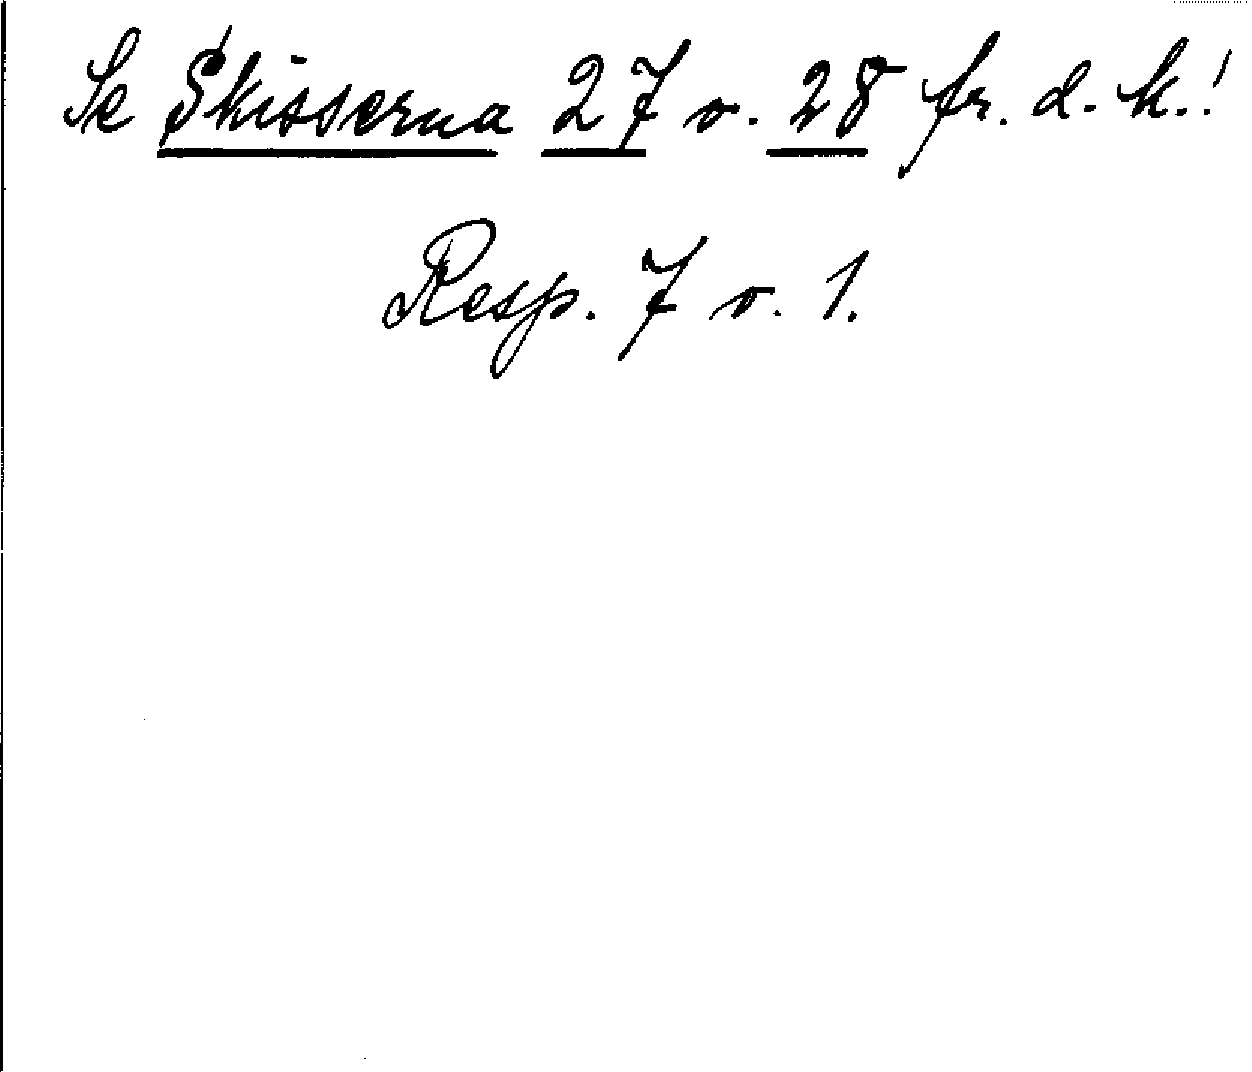 Se Skisserna 27 o. 28 fr. d. k.!
Resp. 7 o. 1.